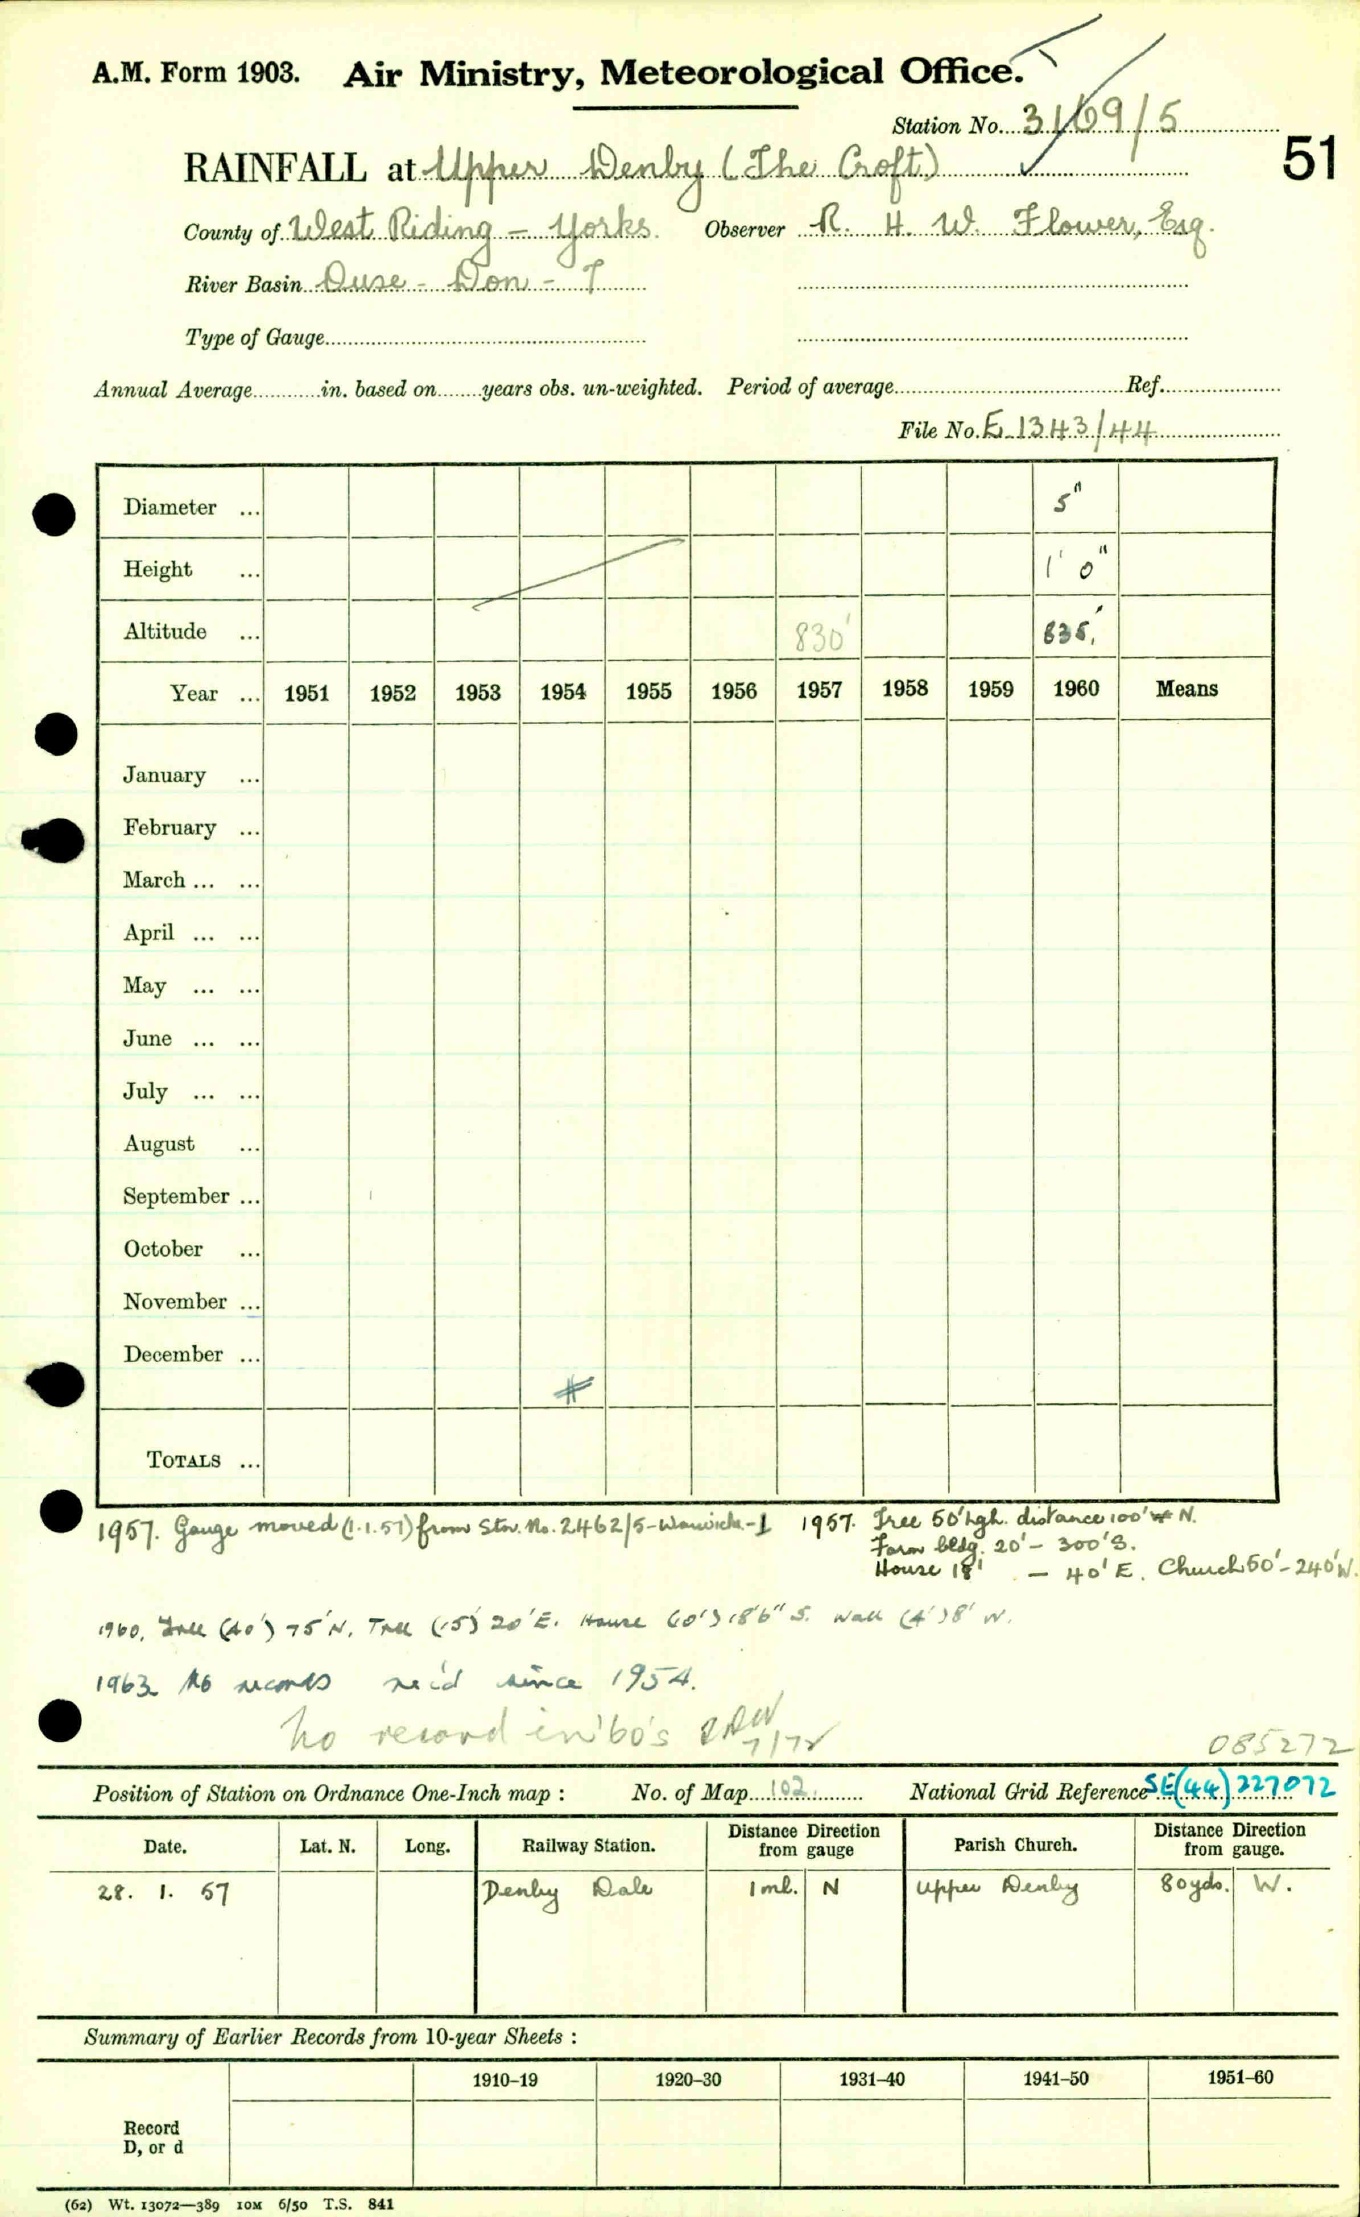 A.M. Form 1903. Air Ministry, Meteorological Office.
Station No. 3169/5
51
RAINFALL at Upper Denby (The Croft)
County of West Riding - Yorks. Observer R. H. W. Flower, Esq.
River Basin Ouse - Don - T
Type of Gauge
Annual Average in. based on years obs. un-weighted. Period of average Ref.
File No. E 1343/44
Diameter ... 5"
Height ... 1' 0"
Altitude ... 830' 835'
Year ... 1951 1952 1953 1954 1955 1956 1957 1958 1959 1960 Means
January ...
February ...
March ... ...
April ... ...
May ... ...
June ... ...
July ... ...
August ...
September ...
October ...
November ...
December ...
#
TOTALS ...
1957. Gauge moved (1.1.57) from Stn. No. 2462/5-Warwick-1 1957. Tree 50' hgh. distance 100' N.
Farm bldg. 20' - 300' S.
House 18' - 40' E. Church 50' - 240' W.
1960. Tree (40') 75' N. Tree (15') 20' E. House (20') 18'6" S. Wall (4') 8' W.
1963 No records rec'd since 1954.
no record in '60's 7/72
085272
Position of Station on Ordnance One-Inch map : No. of Map 102. National Grid Reference SE(44) 227072
Date. Lat. N. Long. Railway Station. Distance Direction from gauge Parish Church. Distance Direction from gauge.
28. 1. 57 Denby Dale 1 ml. N Upper Denby 80 yds. W.
Summary of Earlier Records from 10-year Sheets :
1910–19 1920–30 1931–40 1941–50 1951–60
Record
D, or d
(62) Wt. 13072—389 10M 6/50 T.S. 841